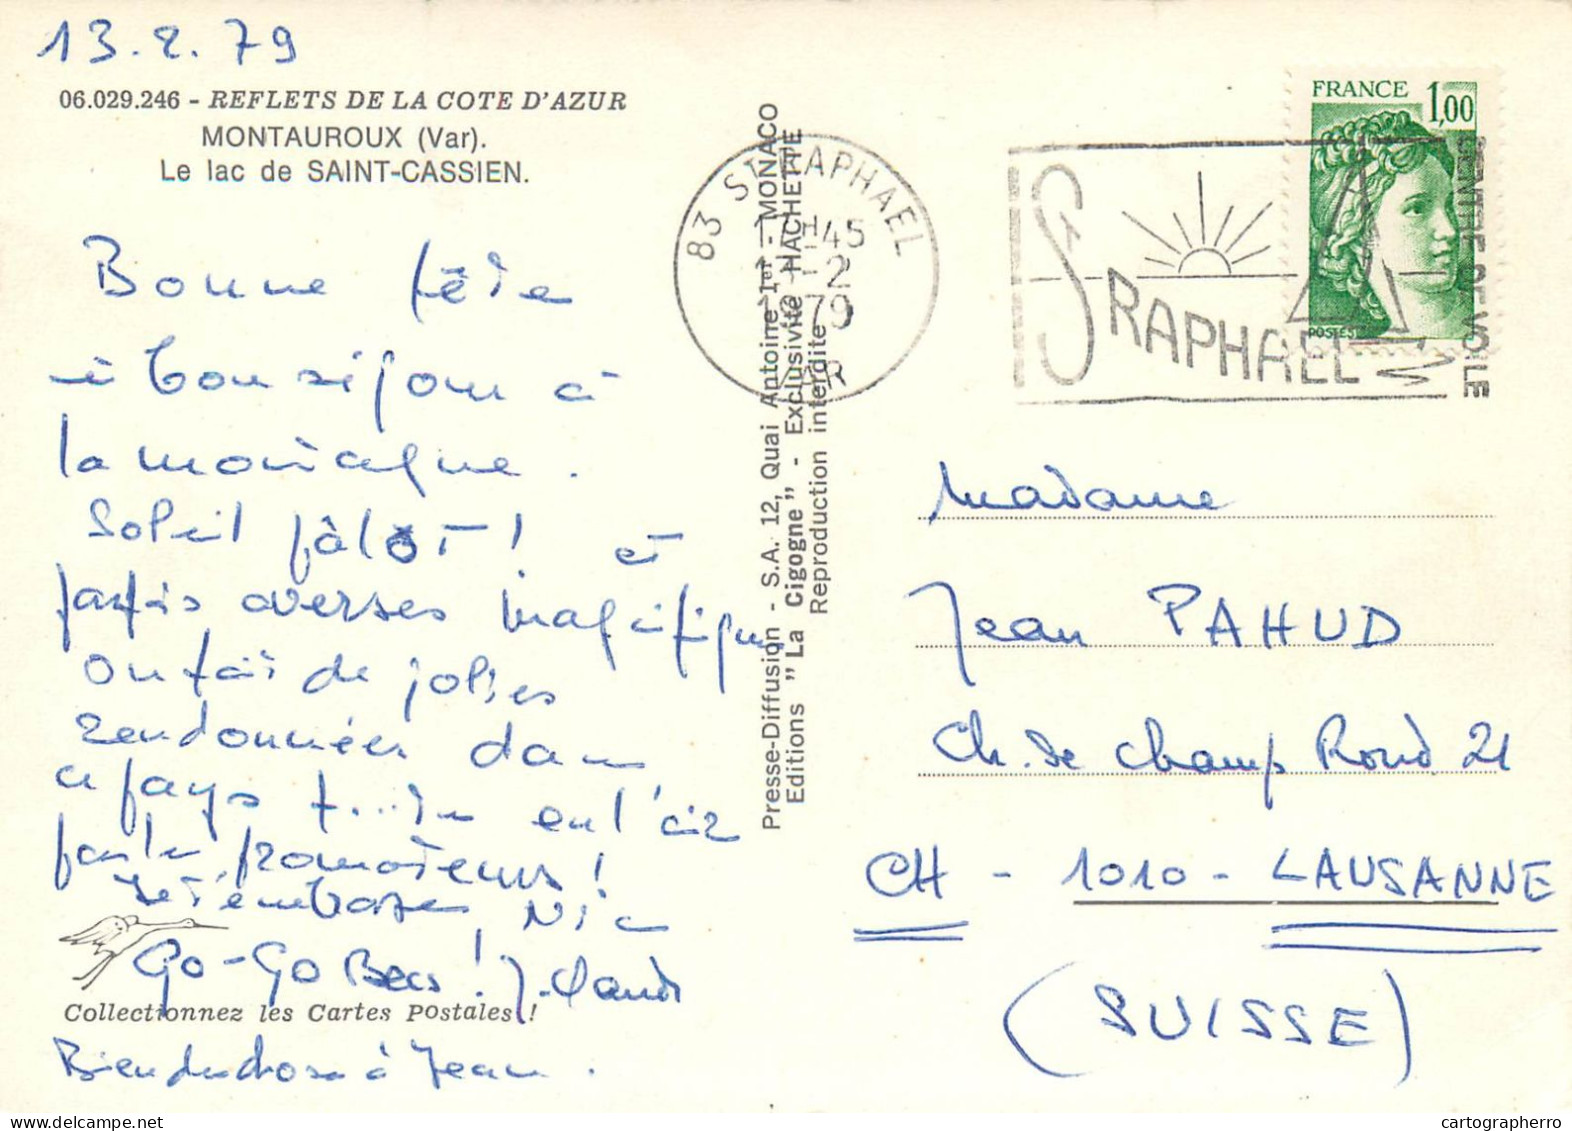 13.2.79
06.029.246 - REFLETS DE LA COTE D'AZUR
MONTAUROUX (Var).
Le lac de SAINT-CASSIEN.
Bonne fête
à bon séjour à
la montagne.
Soleil pâlot! et
parfois averses magnifiques
On fait de jolies
randonnées dans
ce pays en l'air
par les promoteurs!
Je t'embrasse, Nic
Go-Go Becs! J. Claude
Collectionnez les Cartes Postales!
Bien des choses à Jean.
Presse-Diffusion - S.A. 12, Quai Antoine 1er - MONACO
Editions "La Cigogne" - Exclusivité HACHETTE
Reproduction interdite
83 ST RAPHAEL
45
-2
1979
VAR
ST RAPHAEL
CENTRE DE VOILE
FRANCE 1,00
POSTES
Madame
Jean PAHUD
Ch. de Champ Rond 21
CH - 1010 - LAUSANNE
(SUISSE)
cartographerro